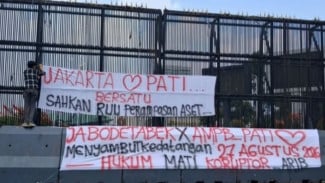 JAKARTA ♡ PATI...
BERSATU
SAHKAN RUU PERAMPASAN ASET...
JABODETABEK X AMPB PATI ♡
MENYAMBUT KEDATANGAN 27 AGUSTUS
HUKUM MATI KORUPTOR